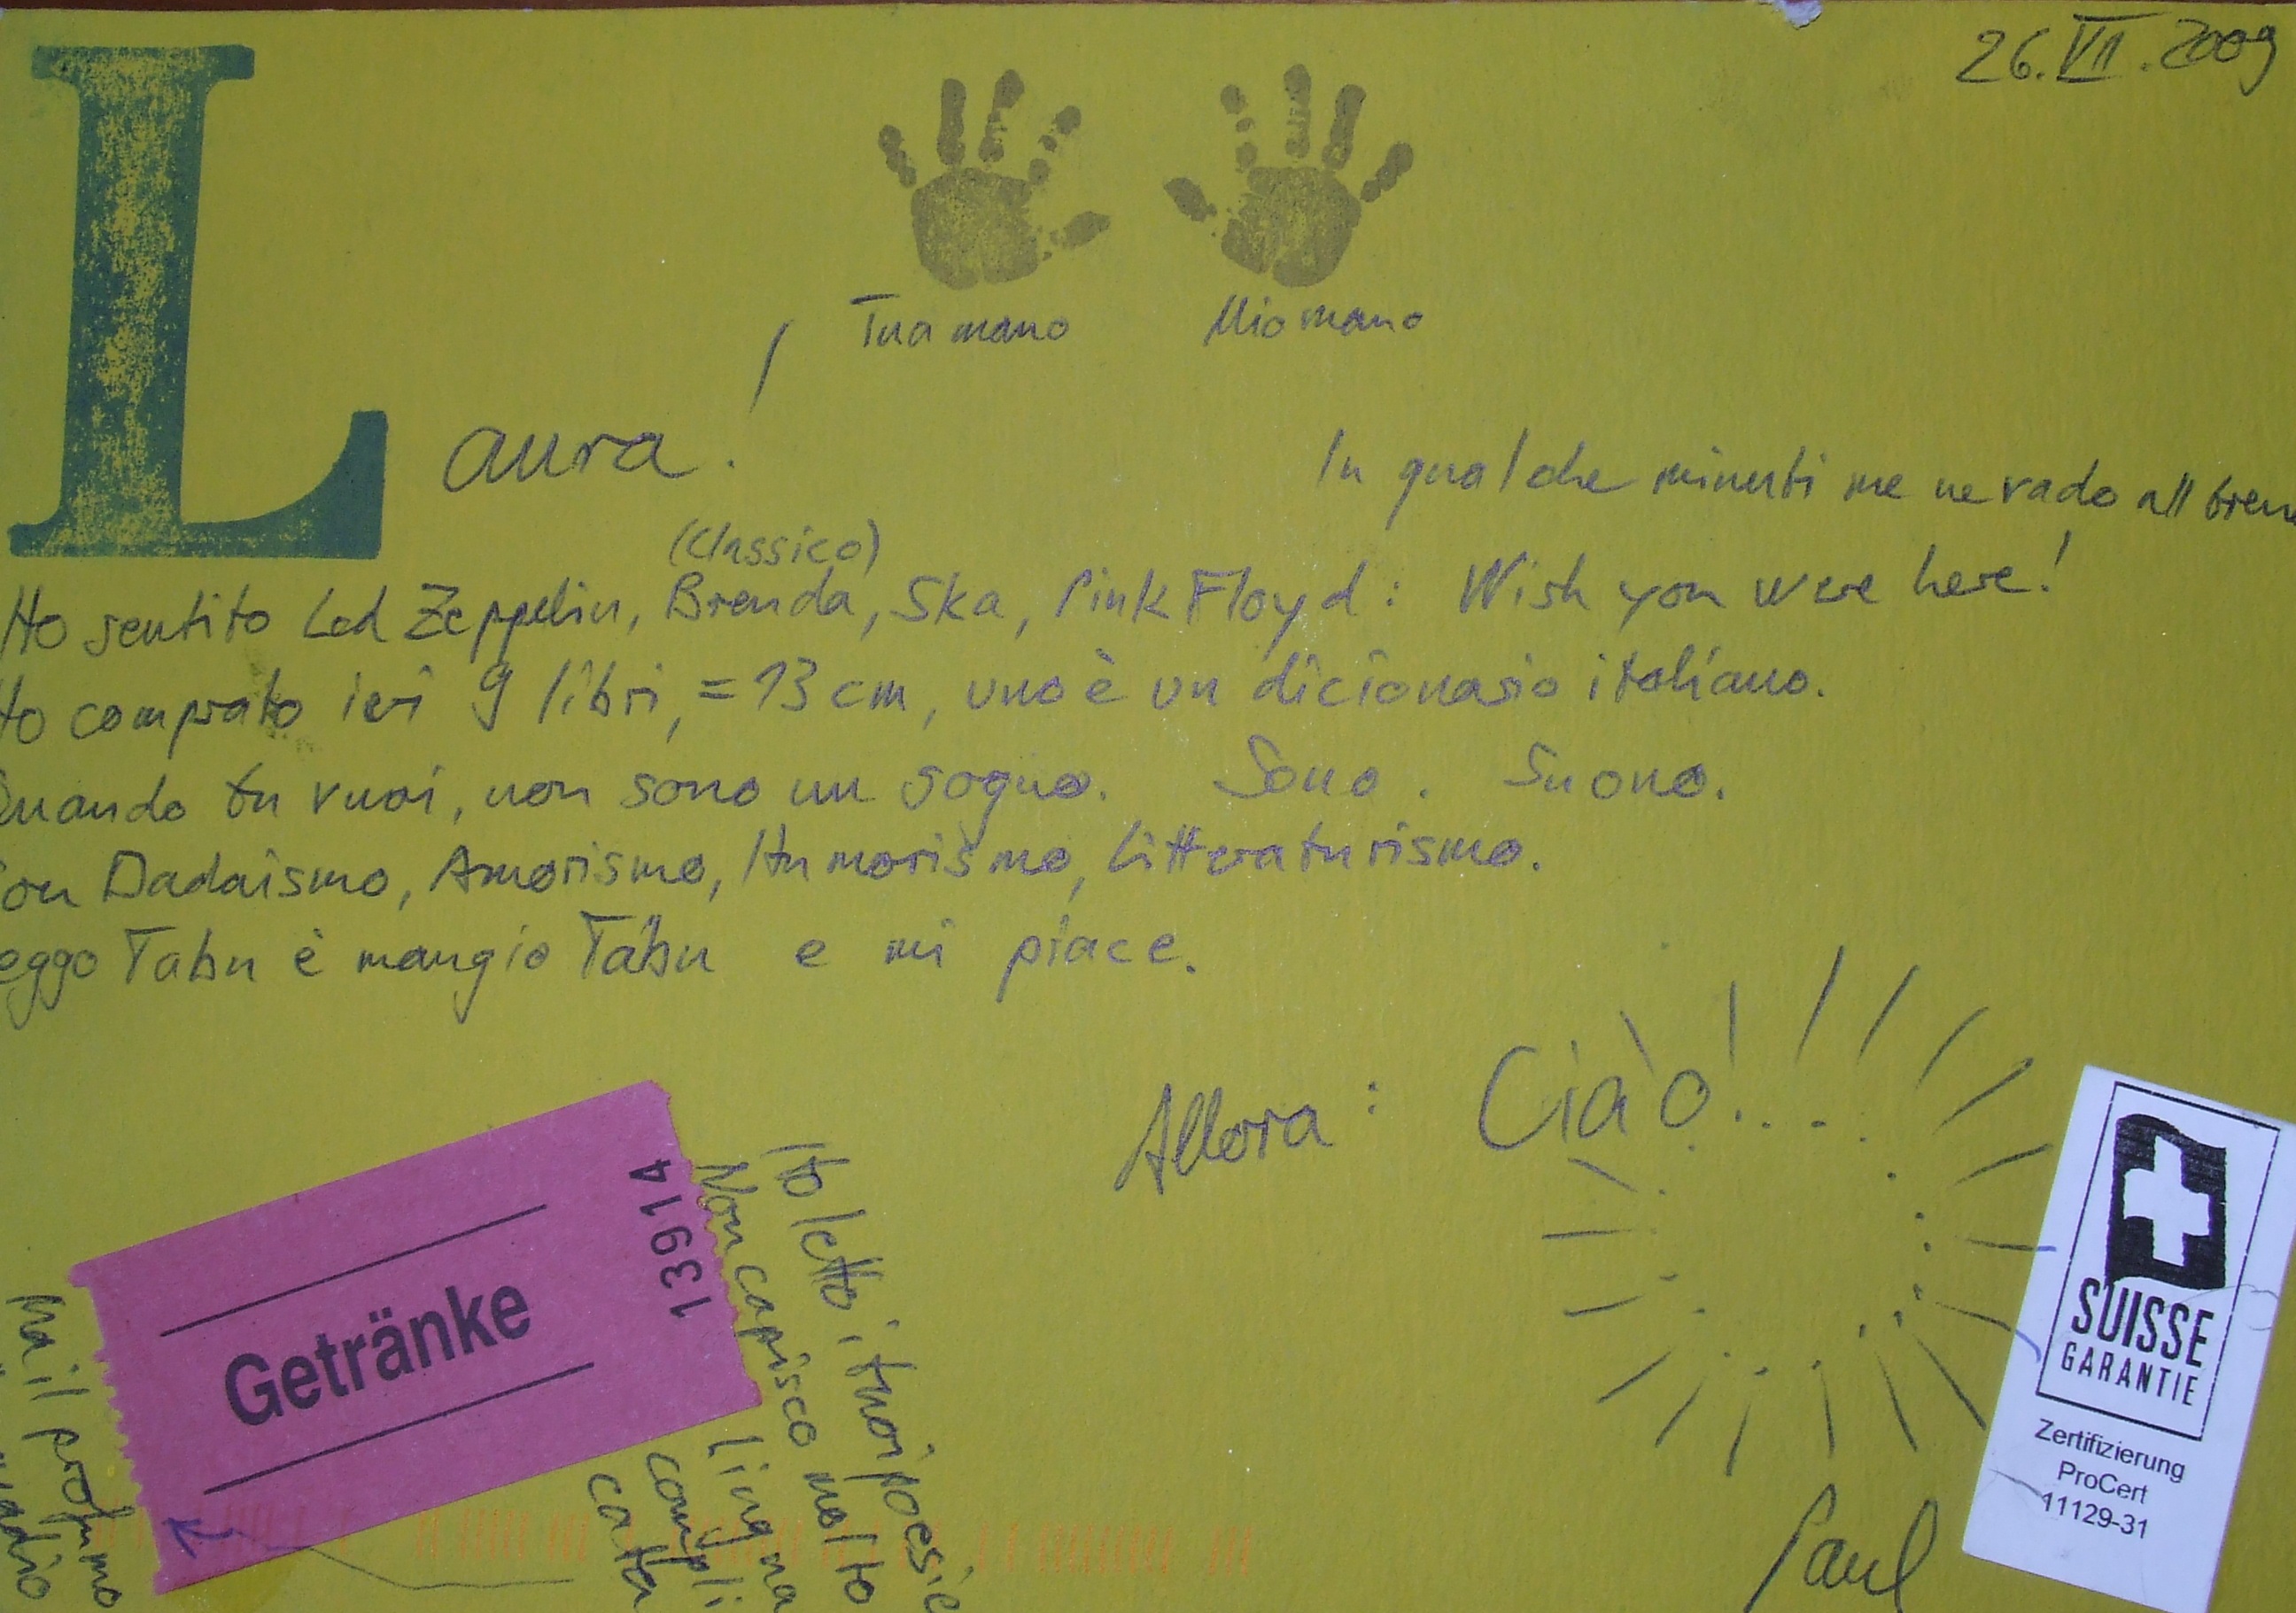 26.VII.2009
Tua mano
Mio mano
Laura!
In qualche minuti me ne vado all
(Classico)
Ho sentito Led Zeppelin, Brenda, Ska, Pink Floyd: Wish you were here!
Ho comprato ieri 9 libri, = 13 cm, uno è un dicionario italiano.
Quando tu vuoi, non sono un sogno. Sono. Suono.
Con Dadaismo, Amorismo, Humorismo, Litteraturismo.
Leggo Tabu è mangio Tabu e mi piace.
Allora: Ciao!
Ho letto i tuoi poesie
Non capisco molto
Lingua
compli
catta
Getränke
13914
Ma il profummo
SUISSE
GARANTIE
Zertifizierung
ProCert
11129-31
Paul